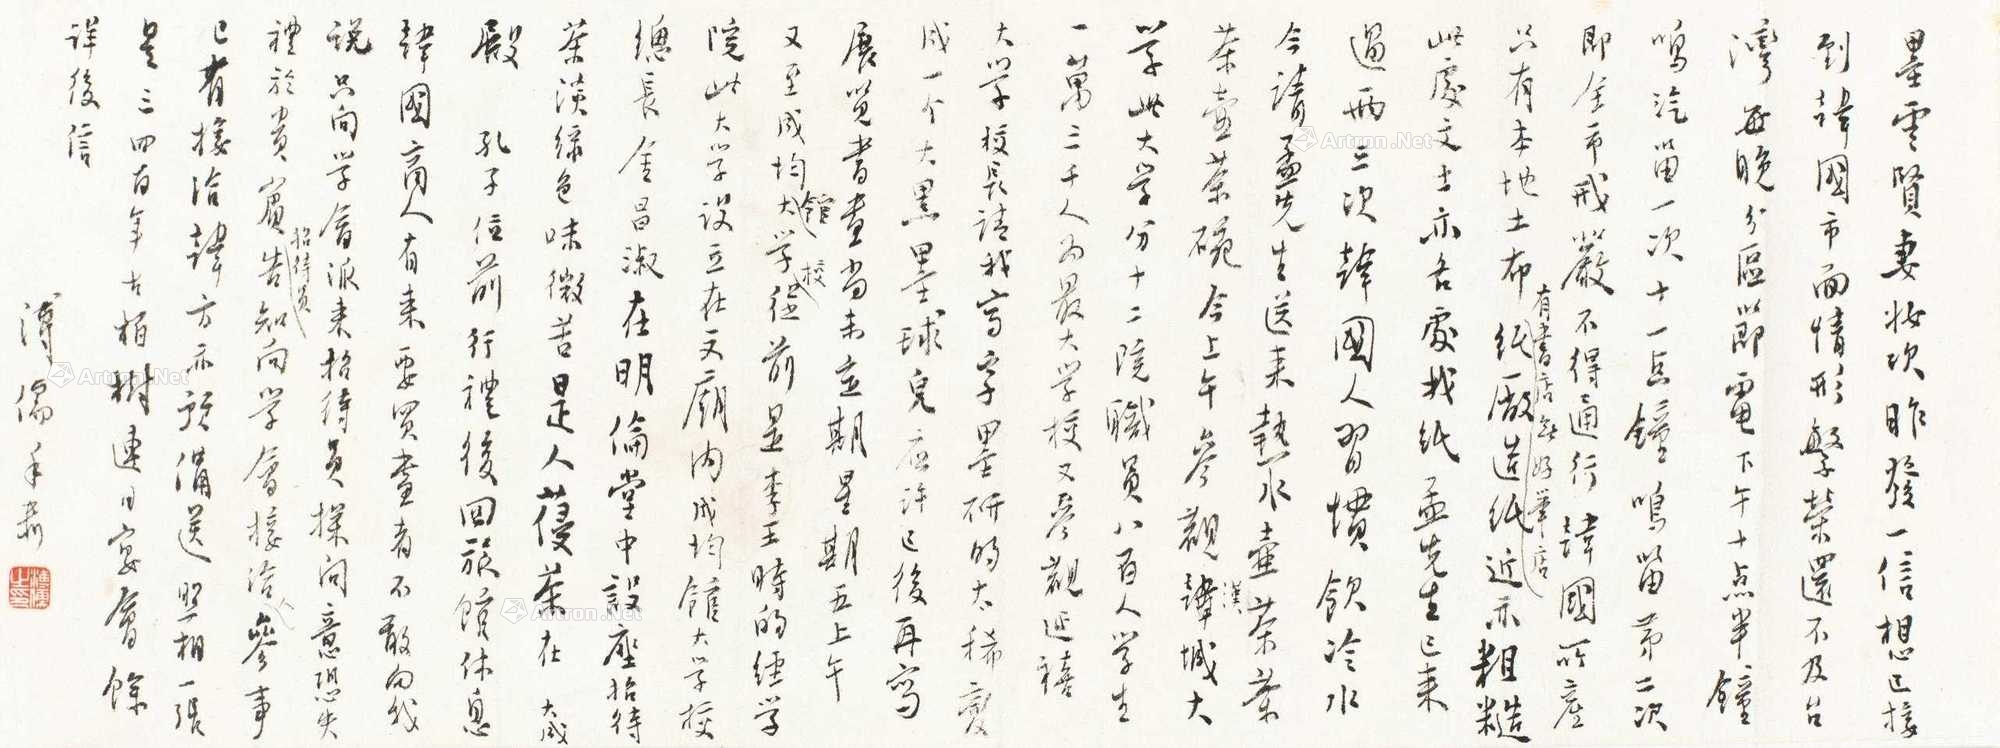 墨雲賢妻妝次昨發一信想已接
到韓國市面情形繁榮還不及台
灣每晚分區節電下午十点半鐘
鳴汽笛一次十一点鐘鳴笛第二次
即全市戒嚴不得通行韓國所產
只有本地土布紙廠造紙近亦粗糙
有書店無好筆店
此處文士亦各處找紙孟先生已來
過兩三次韓國人習慣飲冷水
今請孟先生送來熱水壺茶葉
茶壺茶碗今上午參觀韓城大
漢
學此大學分十二院職員八百人學生
一萬三千人為最大學校又參觀延禧
大學校長請我寫字墨研的太稀變
成一个大黑墨球兒應許已後再寫
展覽書畫尚未立期星期五上午
又至成均大學從前是李王時的經學
館校
院此大學設立在文廟內成均館大學校
總長金昌淑在明倫堂中設座招待
茶淡綠色味微苦是人葠茶在大成
殿 孔子位前行禮後回旅館休息
韓國商人有來要買畫者不敢向我
說只向學會派來招待員探問意恐失
禮於貴賓告知向學會接洽參事
招待員 人
已有接洽韓方亦預備送照相一張
是三四百年古柏樹連日宴會餘
詳後信
溥儒手啟
溥儒之印
Artron.Net
Artron.Net
Artron.Net
Artron.Net
Artron.Net